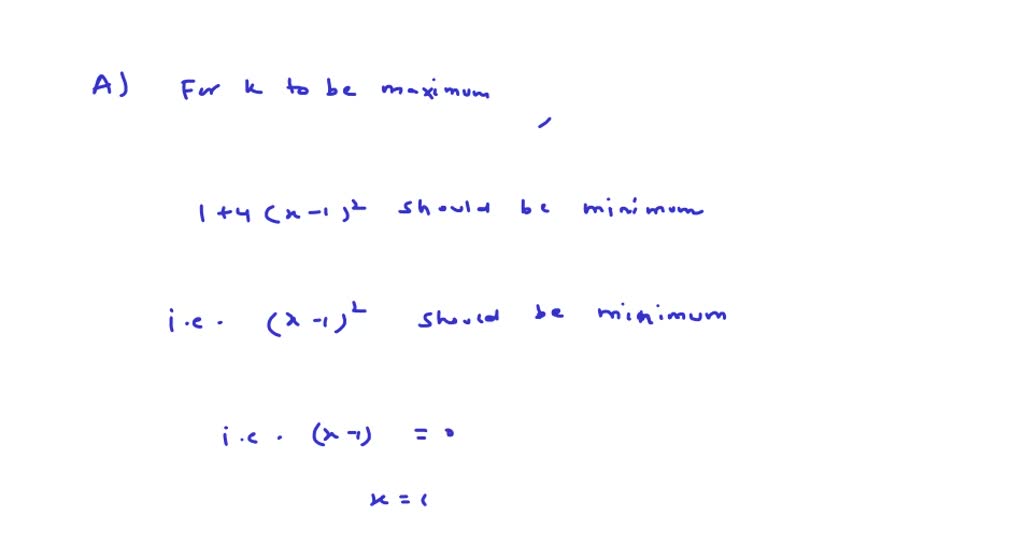 A) For k to be maximum
1+4(x-1)² should be minimum
i.e. (x-1)² should be minimum
i.e. (x-1) = 0
x = 1